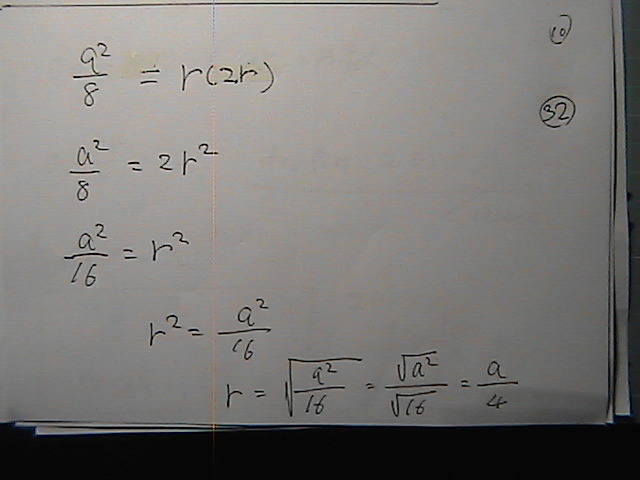 10
a²/8 = r(2r)
32
a²/8 = 2r²
a²/16 = r²
r² = a²/16
r = √(a²/16) = √a²/√16 = a/4